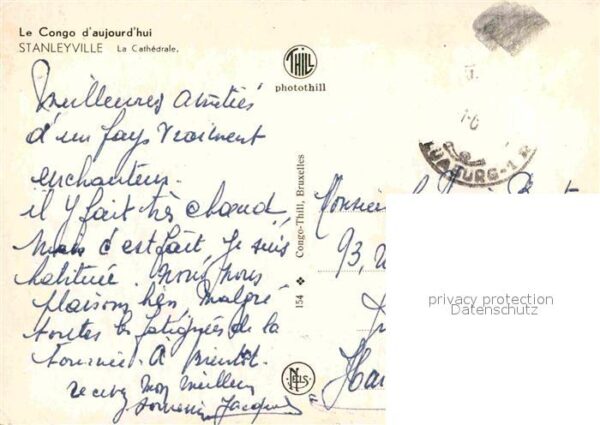 Le Congo d'aujourd'hui
STANLEYVILLE La Cathédrale.
THILL
photothill
Meilleures Amitiés
d'un pays vraiment
enchanteur.
il y fait très chaud,
mais c'est fait, je suis
habituée. Nous nous
plaisons bien malgré
toutes les fatigues de la
tournée. A Bientôt.
recevez mon meilleur
souvenir Jacques
154 Congo-Thill, Bruxelles
NELS
Monsieur
93,
privacy protection
Datenschutz